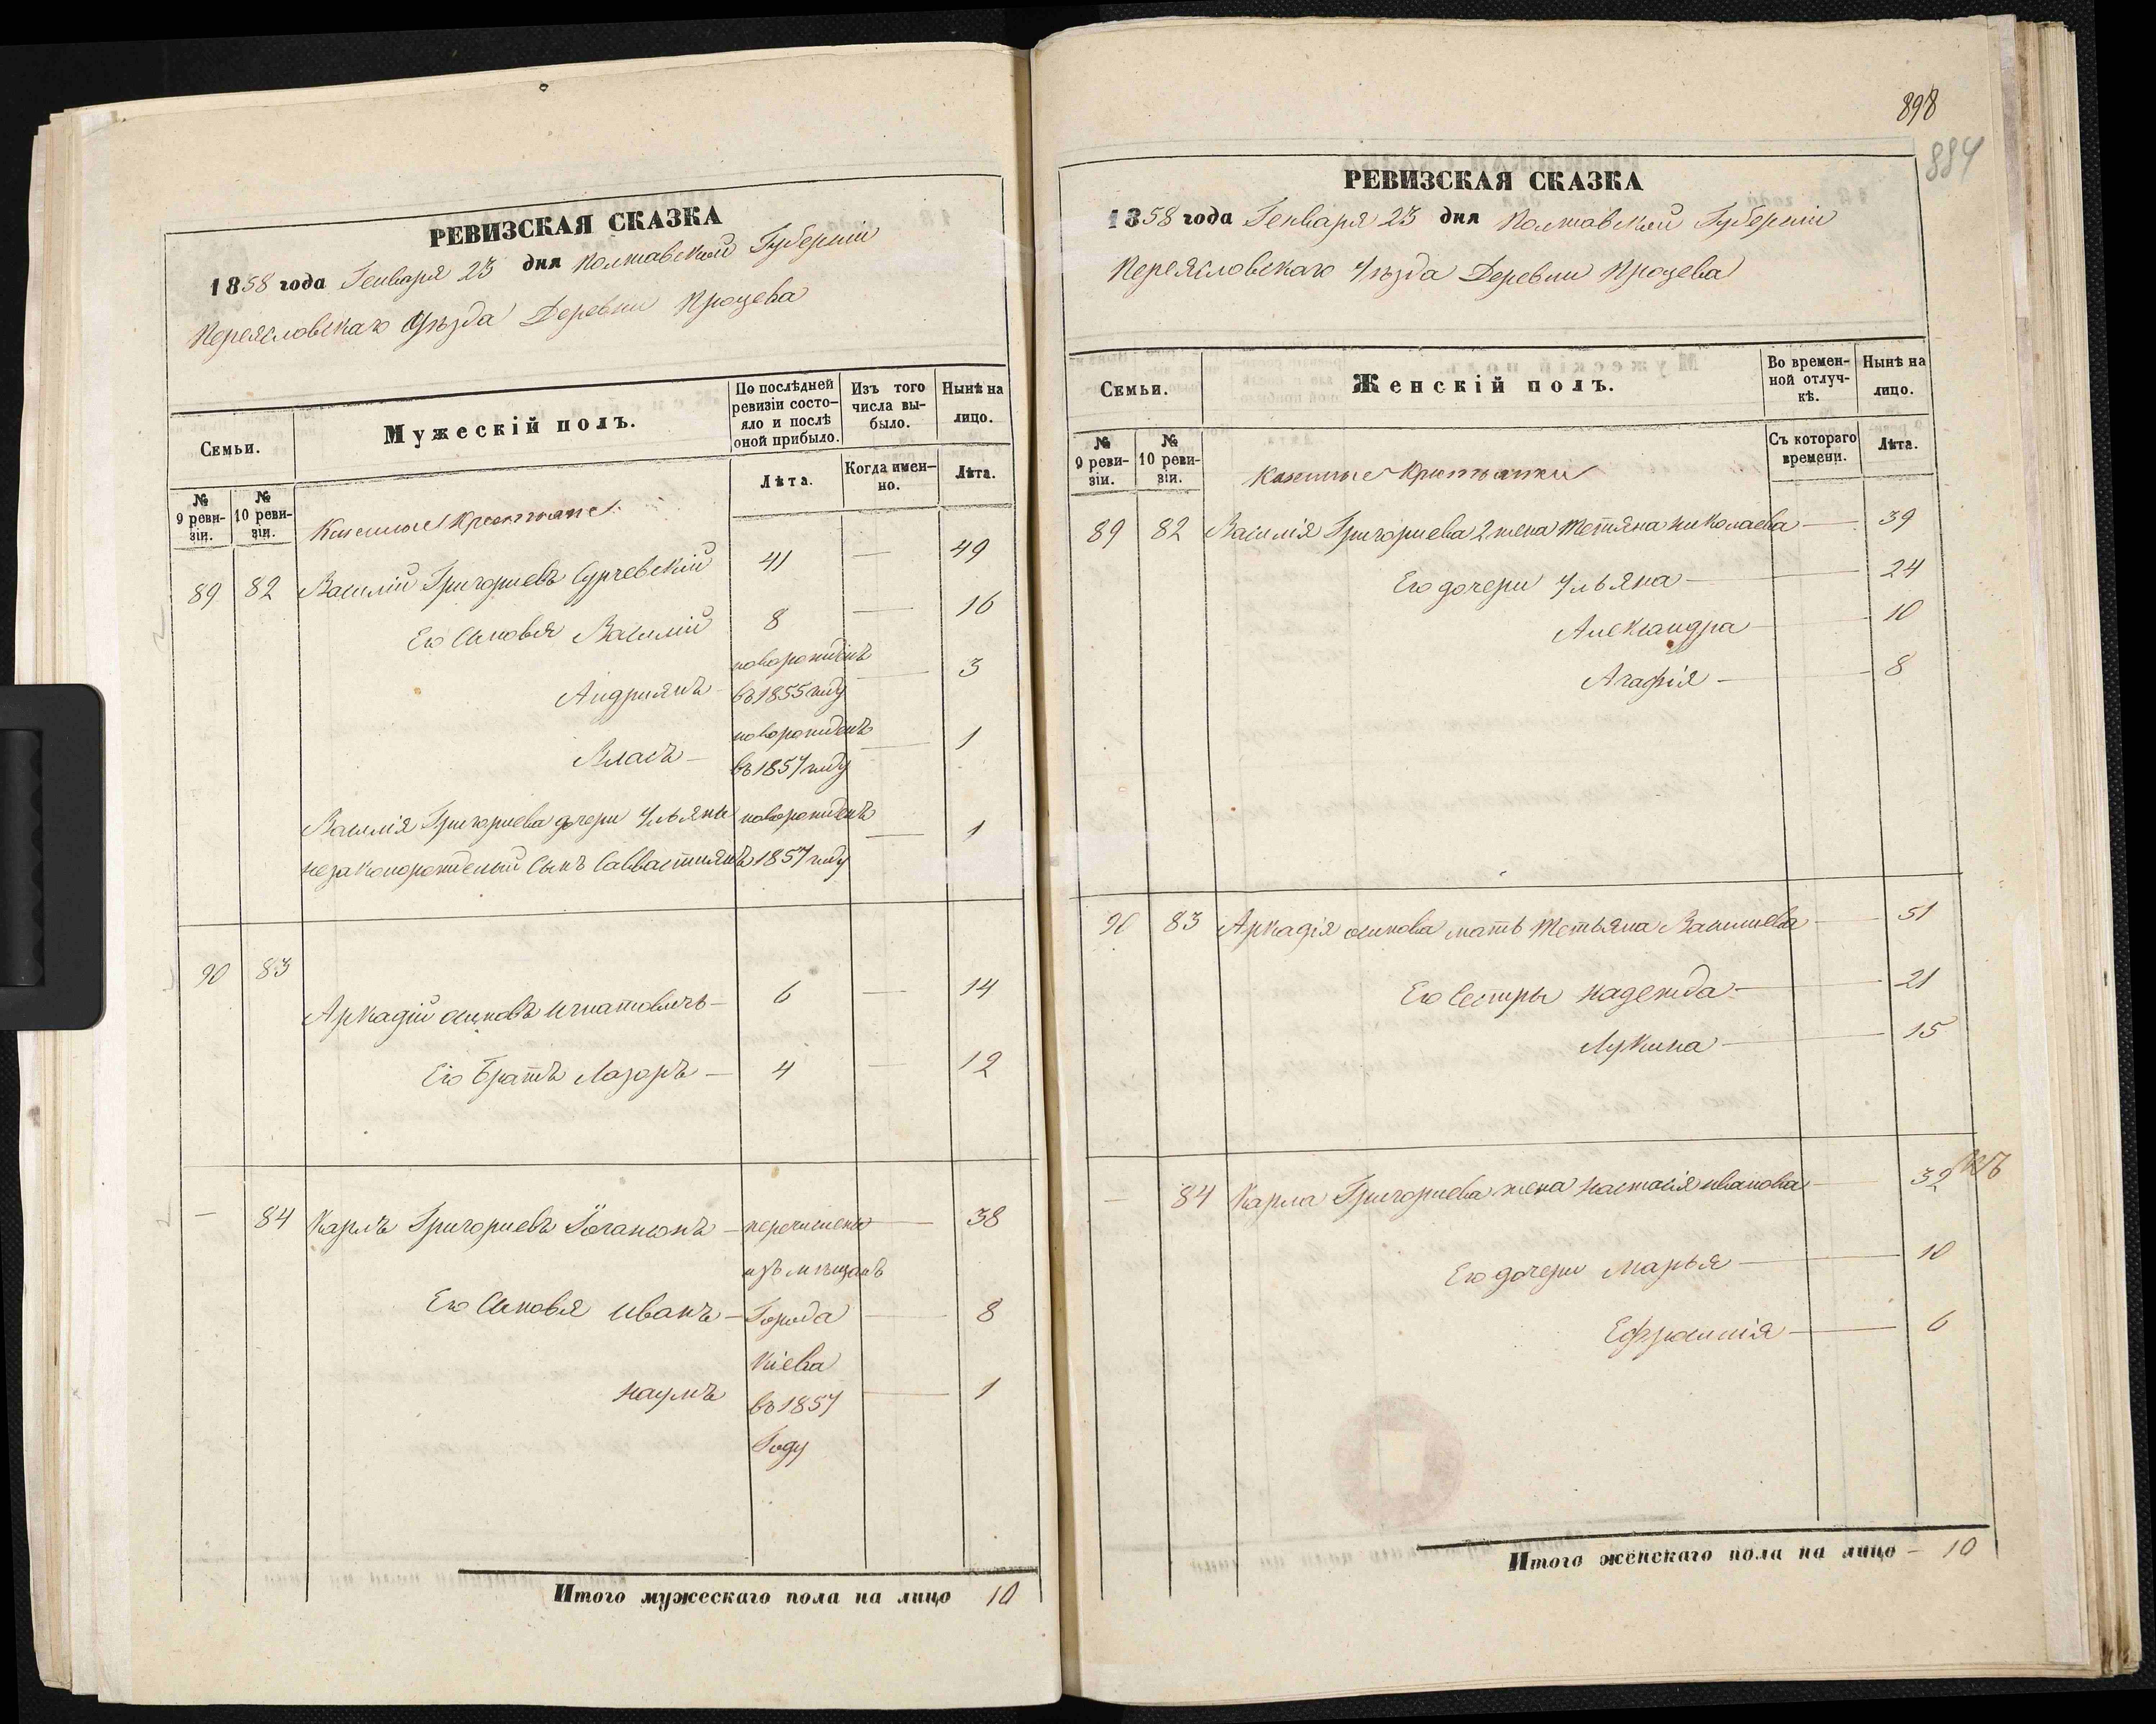 РЕВИЗСКАЯ СКАЗКА
1858 года Генваря 23 дня Полтавской Губерніи
Переясловскаго Уѣзда Деревни Процева
Семьи.
Мужескій полъ.
По послѣдней ревизіи состояло и послѣ оной прибыло.
Изъ того числа выбыло.
Нынѣ на лицо.
№ 9 ревизіи.
№ 10 ревизіи.
Лѣта.
Когда именно.
Лѣта.
Казенные Крестьяне
89 82 Василій Григорьевъ 41 — 49
Его Сыновья Василій 8 — 16
Андриянъ новорожденъ въ 1855 году — 3
Власъ — новорожденъ въ 1857 году — 1
Василія Григориева дочери Ульяны новорожденъ
незаконорожденый Сынъ Савастиянъ 1857 году — 1
90 83
Аркадій осиповъ Игнатовичъ — 6 — 14
Его Братъ Лазоръ — 4 — 12
— 84 Карлъ Григориевъ — перечислены — 38
изъ мѣщанъ
Его Сыновья Иванъ — Города — 8
Кіева
Наумъ въ 1857 — 1
Году
Итого мужескаго пола на лицо 10
898
884
РЕВИЗСКАЯ СКАЗКА
1858 года Генваря 23 дня Полтавской Губерніи
Переясловскаго Уѣзда Деревни Процева
Семьи.
Женскій полъ.
Во временной отлучкѣ.
Нынѣ на лицо.
№ 9 ревизіи.
№ 10 ревизіи.
Съ котораго времени.
Лѣта.
Казенные Крестьянки
89 82 Василія Григориева 2 жена Тетяна Николаева — 39
Его дочери Ульяна — 24
Александра — 10
Агафія — 8
90 83 Аркадія осипова мать Тетьяна Василиева — 51
Его Сестры Надежда — 21
Лукина — 15
— 84 Карла Григориева жена Настасія иванова — 32
Его дочери Марья — 10
Ефросинія — 6
Итого женскаго пола на лицо — 10